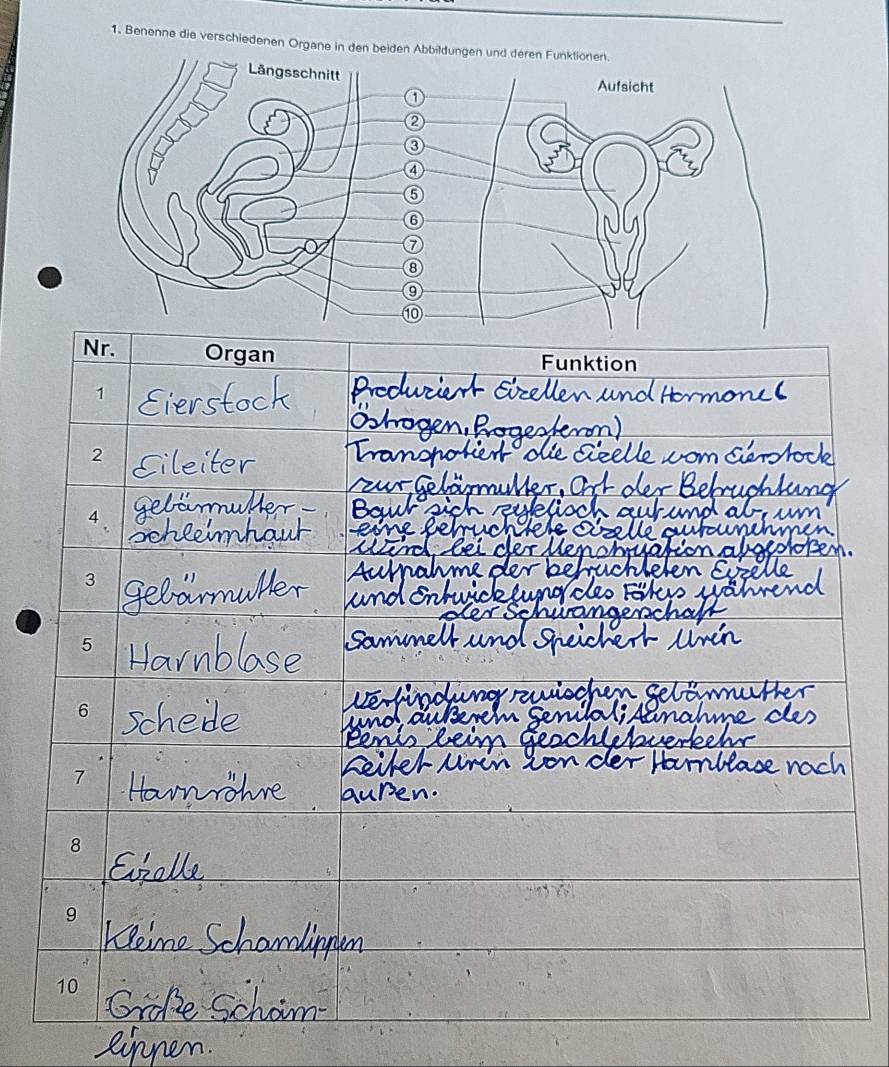 1. Benenne die verschiedenen Organe in den beiden Abbildungen und deren Funktionen.
Längsschnitt
Aufsicht
1
2
3
4
5
6
7
8
9
10
Nr. Organ Funktion
1 Eierstock Produziert Eizellen und Hormone (
Östrogen, Progesteron)
2 Eileiter Transpotiert die Eizelle vom Eierstock
zur Gebärmutter, Ort der Befruchtung
4 gebärmutter- Baut sich zyklisch auf und ab, um
schleimhaut eine befruchtete Eizelle aufzunehmen
wird bei der Menstruation abgestoßen.
3 gebärmutter Aufnahme der befruchteten Eizelle
und Entwicklung des Fötus während
der Schwangerschaft
5 Harnblase Sammelt und Speichert Urin
6 Scheide Verbindung zwischen gebärmutter
und äußerem Genital; Aunahme des
Penis beim Geschlechtverkehr
7 Harnröhre Leitet Urin von der Harnblase nach
außen.
8 Eizelle
9 Kleine Schamlippen
10 Große Scham-
lippen.